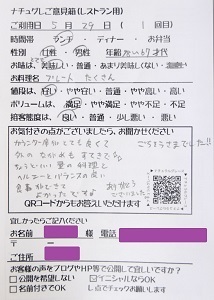 ナチュグレご意見箱(レストラン用)
ご利用日 5月29日 ( 1 回目)
時間帯 ランチ ・ ディナー ・ お弁当
性別 女性・男性 年齢 だいたい 才代
お味は、美味しい・普通・あまり美味しくない・
お料理名 プレート たくさん
値段は、良い・やや良い・普通・やや高い・高い
ボリュームは、満足・やや満足・普通・やや不満・不満
接客態度は、良い・普通・少し悪い・悪い
お気付きの点がございましたら、お聞かせください
ごちそうさまでした!!
カウンター席がとても良くて
外の
料理と
ヘルシーとバランスの良い
食事ができて
よかったです
ありがとうございました
QRコードからもお答えいただけます
宜しかったらご記入ください
お名前 様 電話
〒 ー
ご住所
お客様の声をブログやHP等で公開して宜しいですか?
□公開を希望しない ☑イニシャルならOK
□名前付きでOK しるしでチェックお願いします